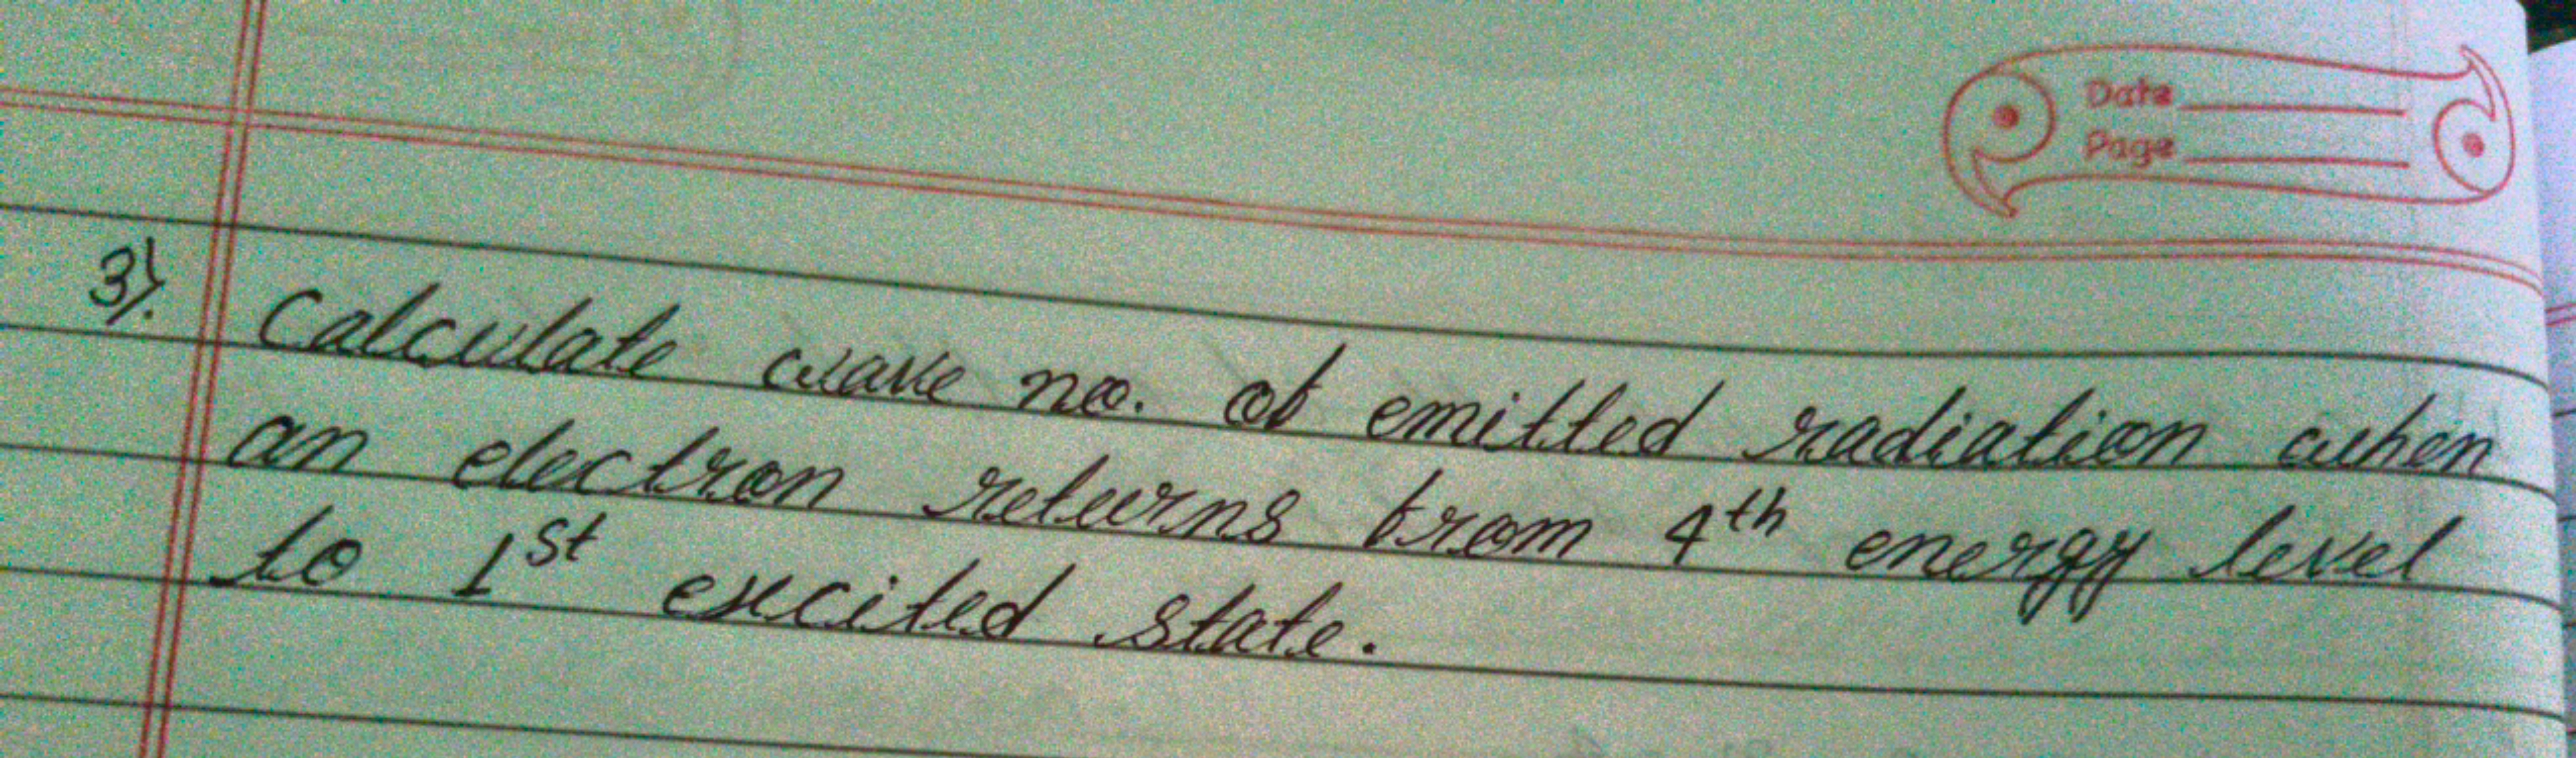 Date
Page
3). Calculate wave no. of emitted radiation when
an electron returns from 4th energy level
to 1st excited state.